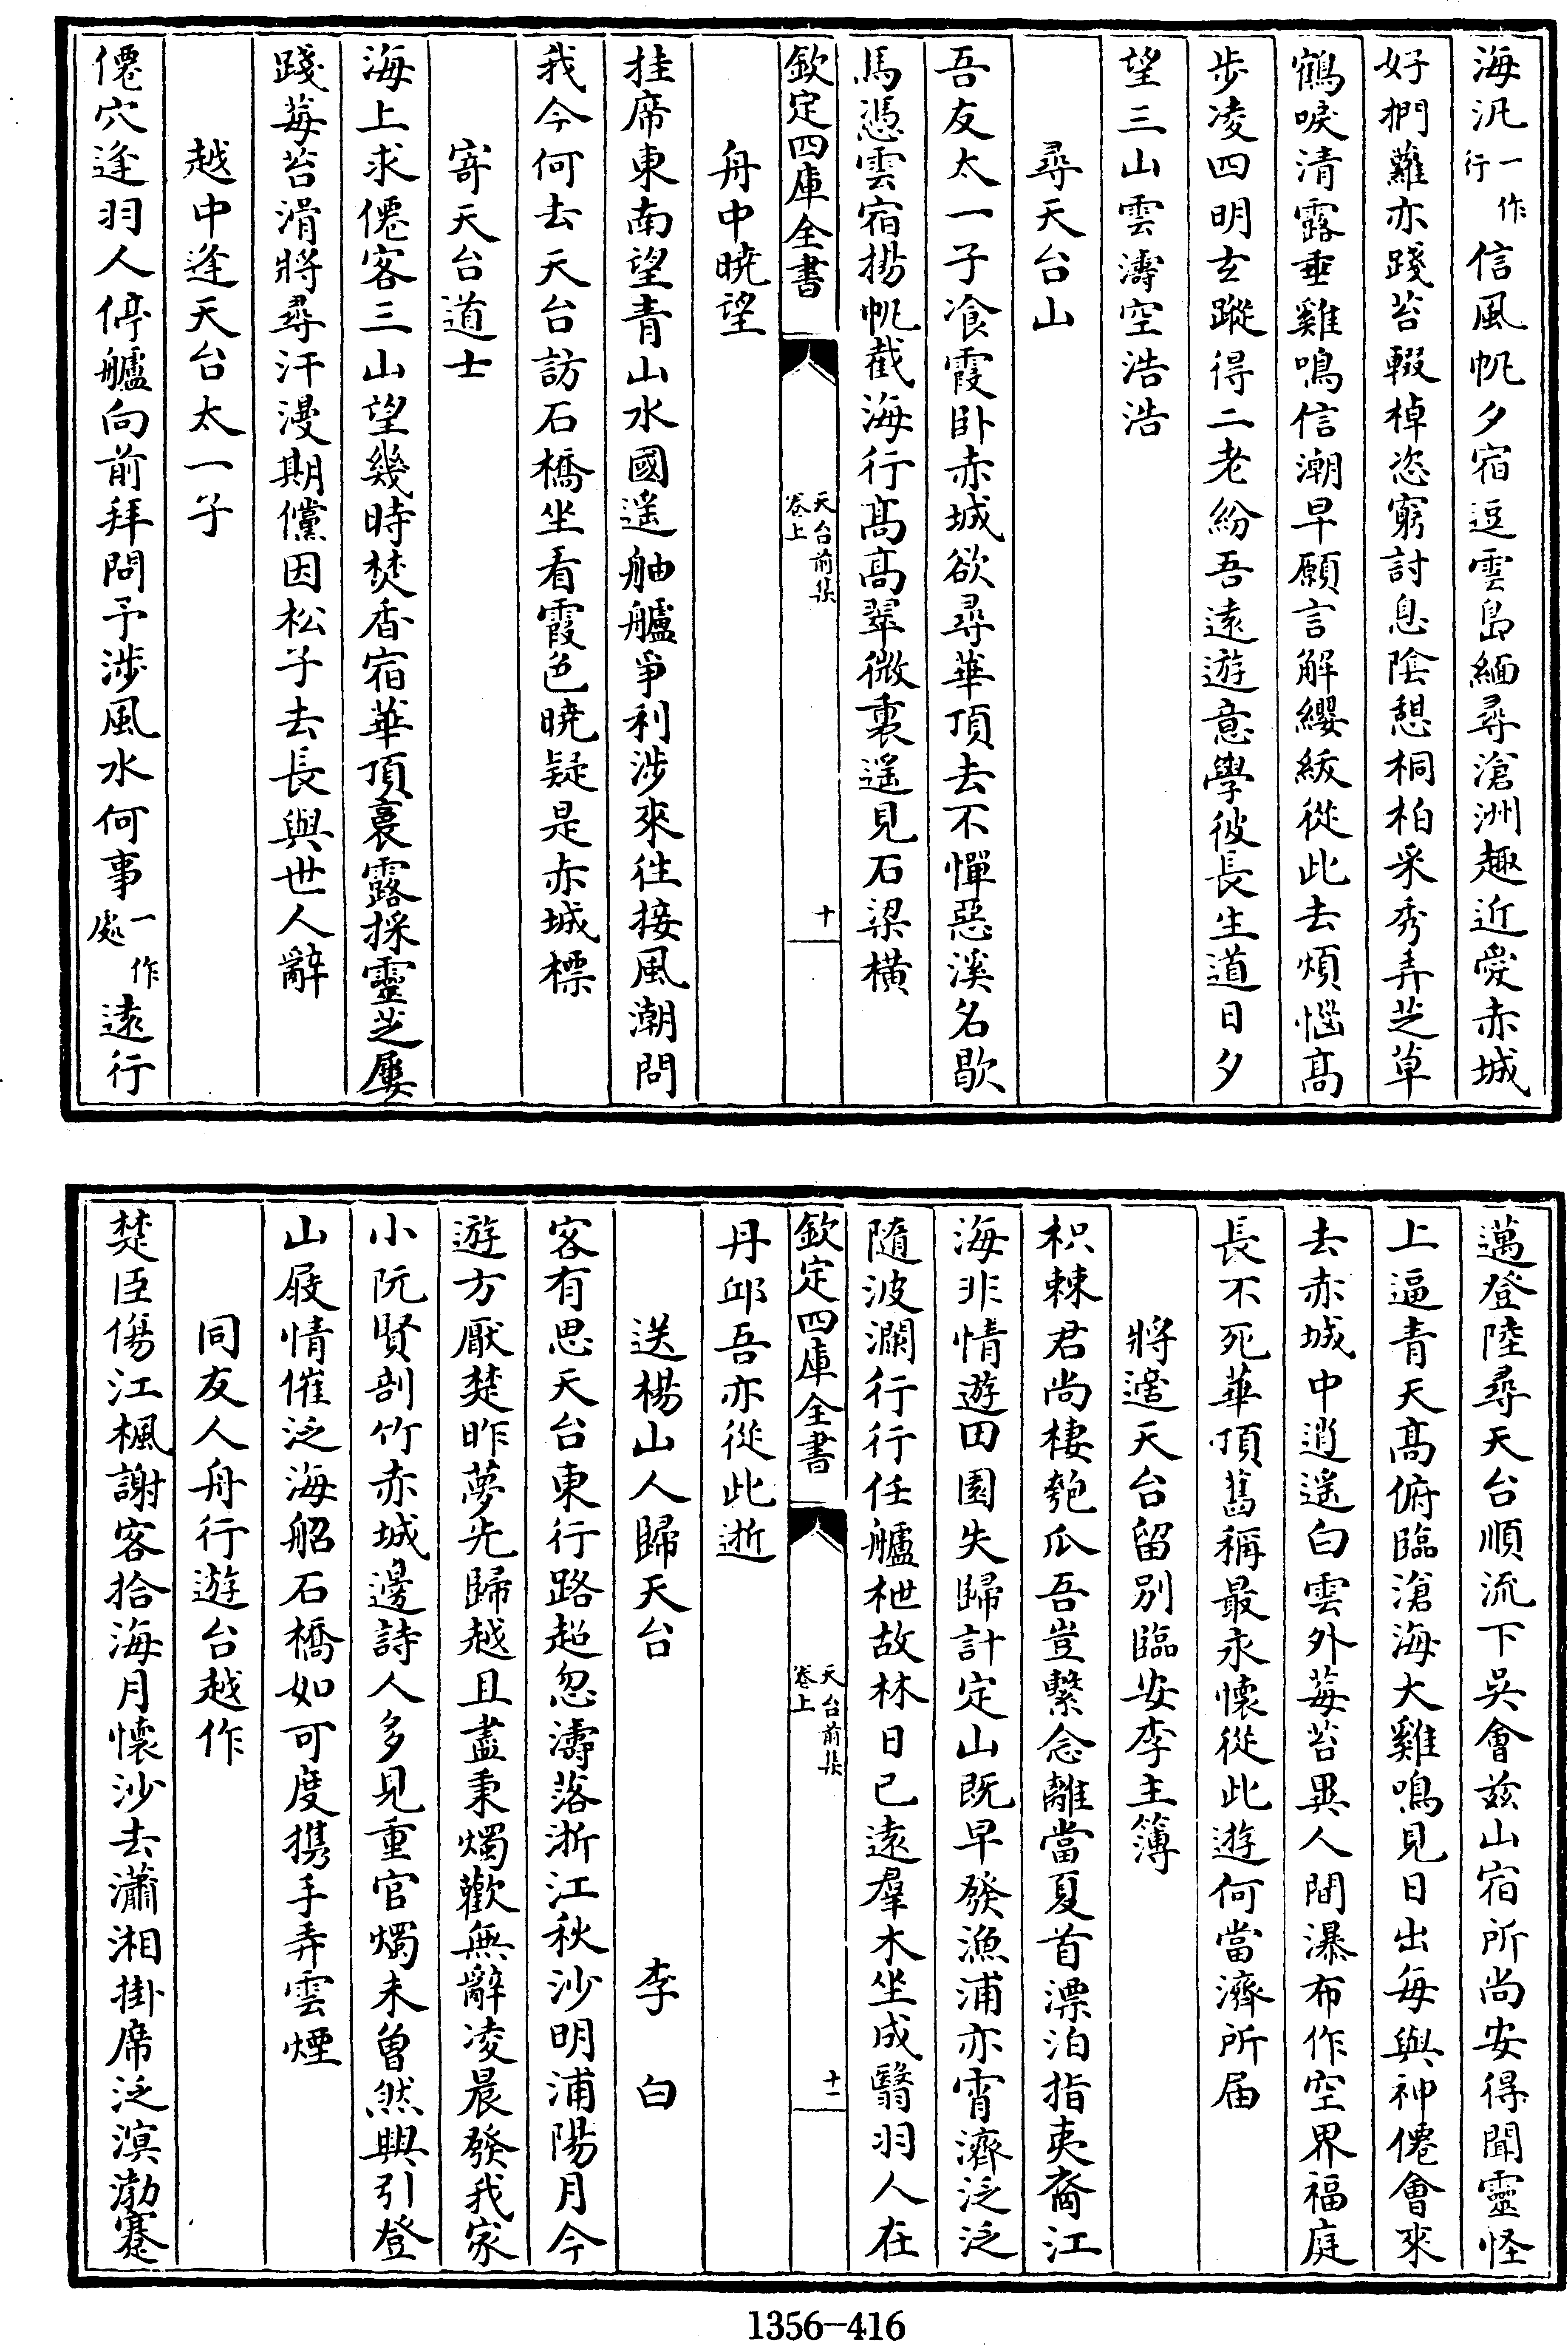 海汎一作行信風帆夕宿逗雲島緬尋滄洲趣近愛赤城
好捫蘿亦踐苔輟棹恣窮討息陰憩桐柏采秀弄芝草
鶴唳清露垂雞鳴信潮早願言解纓紱從此去煩惱高
步凌四明玄蹤得二老紛吾遠遊意學彼長生道日夕
望三山雲濤空浩浩
尋天台山
吾友太一子飡霞卧赤城欲尋華頂去不憚惡溪名歇
馬憑雲宿揚帆截海行高高翠微裏遥見石梁橫
欽定四庫全書
天台前集
卷上
十
舟中曉望
挂席東南望青山水國遥舳艫爭利涉來往接風潮問
我今何去天台訪石橋坐看霞色曉疑是赤城標
寄天台道士
海上求僊客三山望幾時焚香宿華頂裛露採靈芝屢
踐莓苔滑將尋汗漫期儻因松子去長與世人辭
越中逢天台太一子
僊穴逢羽人停艫向前拜問予涉風水何事一作處遠行
邁登陸尋天台順流下吳會兹山宿所尚安得聞靈怪
上逼青天高俯臨滄海大雞鳴見日出每與神僊會來
去赤城中逍遥白雲外莓苔異人間瀑布作空界福庭
長不死華頂舊稱最永懷從此遊何當濟所届
將適天台留別臨安李主簿
枳棘君尚棲匏瓜吾豈繫念離當夏首漂泊指夷裔江
海非情遊田園失歸計定山既早發漁浦亦宵濟泛泛
隨波瀾行行任艫枻故林日已遠羣木坐成翳羽人在
欽定四庫全書
天台前集
卷上
十一
丹邱吾亦從此逝
送楊山人歸天台 李白
客有思天台東行路超忽濤落浙江秋沙明浦陽月今
遊方厭楚昨夢先歸越且盡秉燭歡無辭凌晨發我家
小阮賢剖竹赤城邊詩人多見重官燭未曾然興引登
山屐情催泛海船石橋如可度携手弄雲煙
同友人舟行遊台越作
楚臣傷江楓謝客拾海月懷沙去瀟湘掛席泛溟渤蹇
1356-416